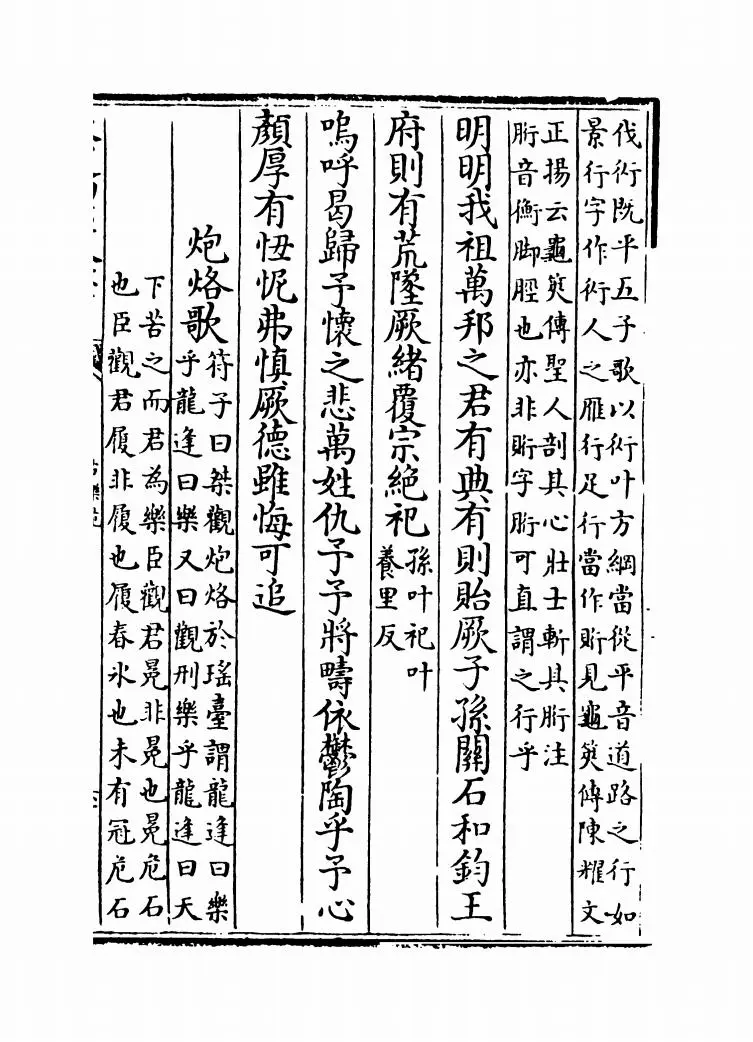 伐術既平五子歌以術叶方綱當從平音道路之行如
景行字作術人之雁行足行當作䯒見龜筴傳陳耀文
正揚云龜筴傳聖人剖其心壯士斬其䯒注
䯒音衡脚脛也亦非䯒字䯒可直謂之行乎
明明我祖萬邦之君有典有則貽厥子孫關石和鈞王
府則有荒墜厥緒覆宗絕祀
孫叶祀叶
養里反
嗚呼曷歸予懷之悲萬姓仇予予將疇依鬱陶乎予心
顏厚有忸怩弗慎厥德雖悔可追
炮烙歌
符子曰桀觀炮烙於瑤臺謂龍逢曰樂
乎龍逢曰樂又曰觀刑樂乎龍逢曰天
下苦之而君為樂臣觀君冕非冕也冕危石
也臣觀君履非履也履春氷也未有冠危石